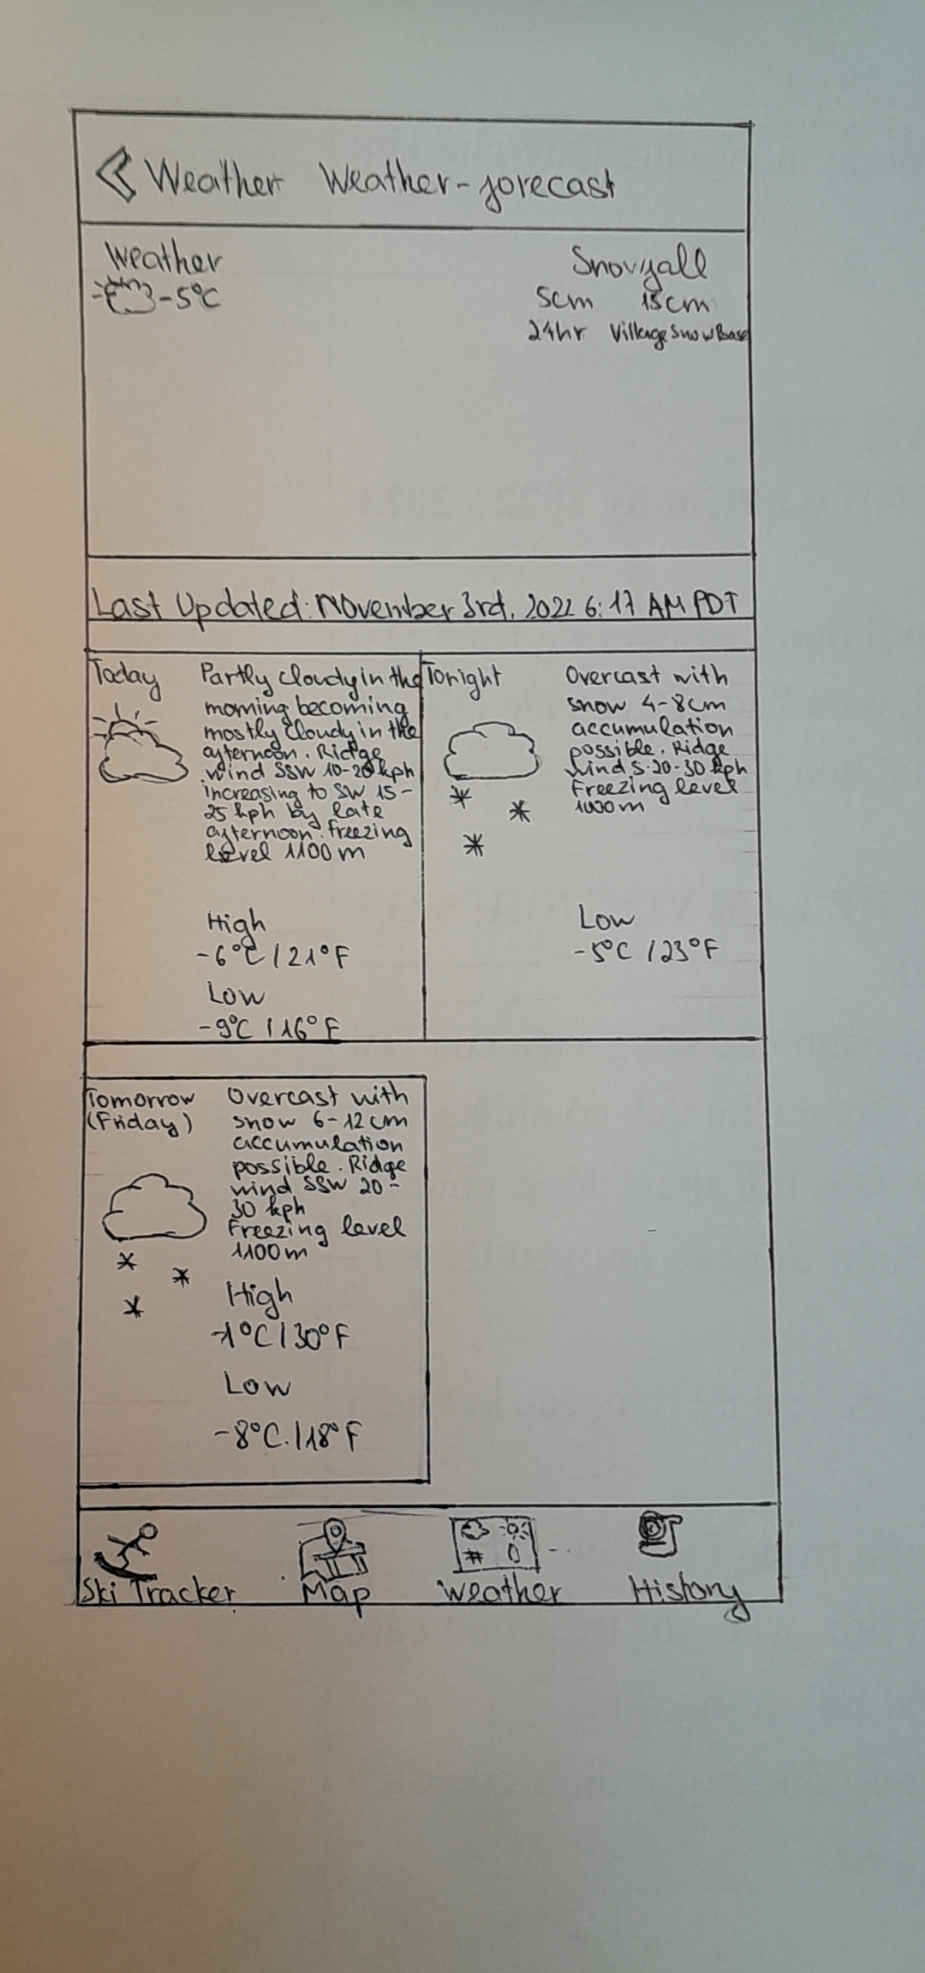 Weather Weather-forecast
Weather
-5°C
Snowfall
5cm 15cm
24hr Village Snow Base
Last Updated: November 3rd, 2022 6:17 AM PDT
Today
Partly cloudy in the
morning becoming
mostly cloudy in the
afternoon. Ridge
wind SSW 10-20 kph
increasing to SW 15-
25 kph by late
afternoon. freezing
level 1100 m
High
-6°C / 21°F
Low
-9°C / 16°F
Tonight
Overcast with
snow 4-8cm
accumulation
possible. Ridge
wind S:20-30 kph
Freezing level
1000m
Low
-5°C / 23°F
Tomorrow
(Friday)
Overcast with
snow 6-12cm
accumulation
possible. Ridge
wind SSW 20-
30 kph
Freezing level
1100m
High
-1°C / 30°F
Low
-8°C. / 18°F
Ski Tracker Map Weather History